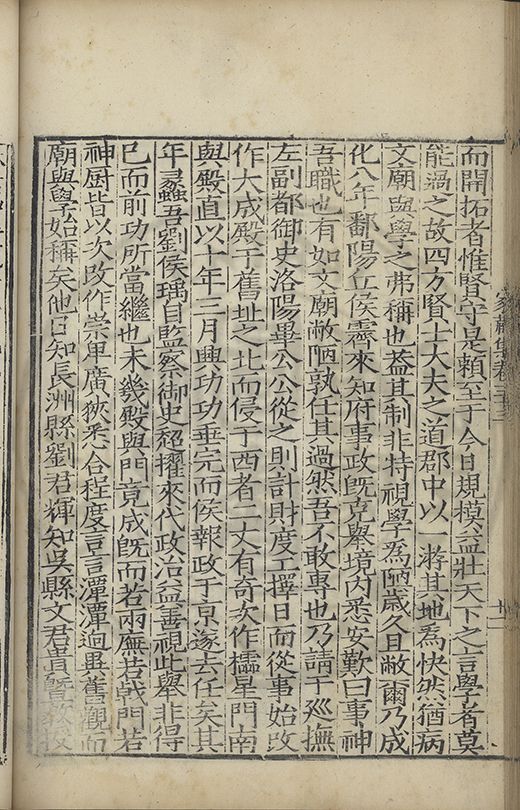 而開拓者惟賢守是賴至于今日規模益壯天下之言學者莫
能過之故四方賢士大夫之道郡中以一游其地為快然猶病
文廟與學之弗稱也葢其制非特視學為陋歲久且敝爾乃成
化八年鄱陽丘侯霽來知府事政旣克舉境内悉安歎曰事神
吾職也有如文廟敝陋孰任其過然吾不敢專也乃請于廵撫
左副都御史洛陽畢公公從之則計財度工擇日而從事始改
作大成殿于舊址之北而侵于西者二丈有奇次作櫺星門南
與殿直以十年三月興功功垂完而侯報政于京遂去任矣其
年蠡吾劉侯瑀自監察御史超擢來代政治益善視此舉非得
已而前功所當繼也未幾殿與門竟成旣而若兩廡若戟門若
神厨皆以次改作崇卑廣狹悉合程度言言潭潭逈異舊觀而
廟與學始稱矣他日知長洲縣劉君輝知吳縣文君貴曁敎授
家藏集卷